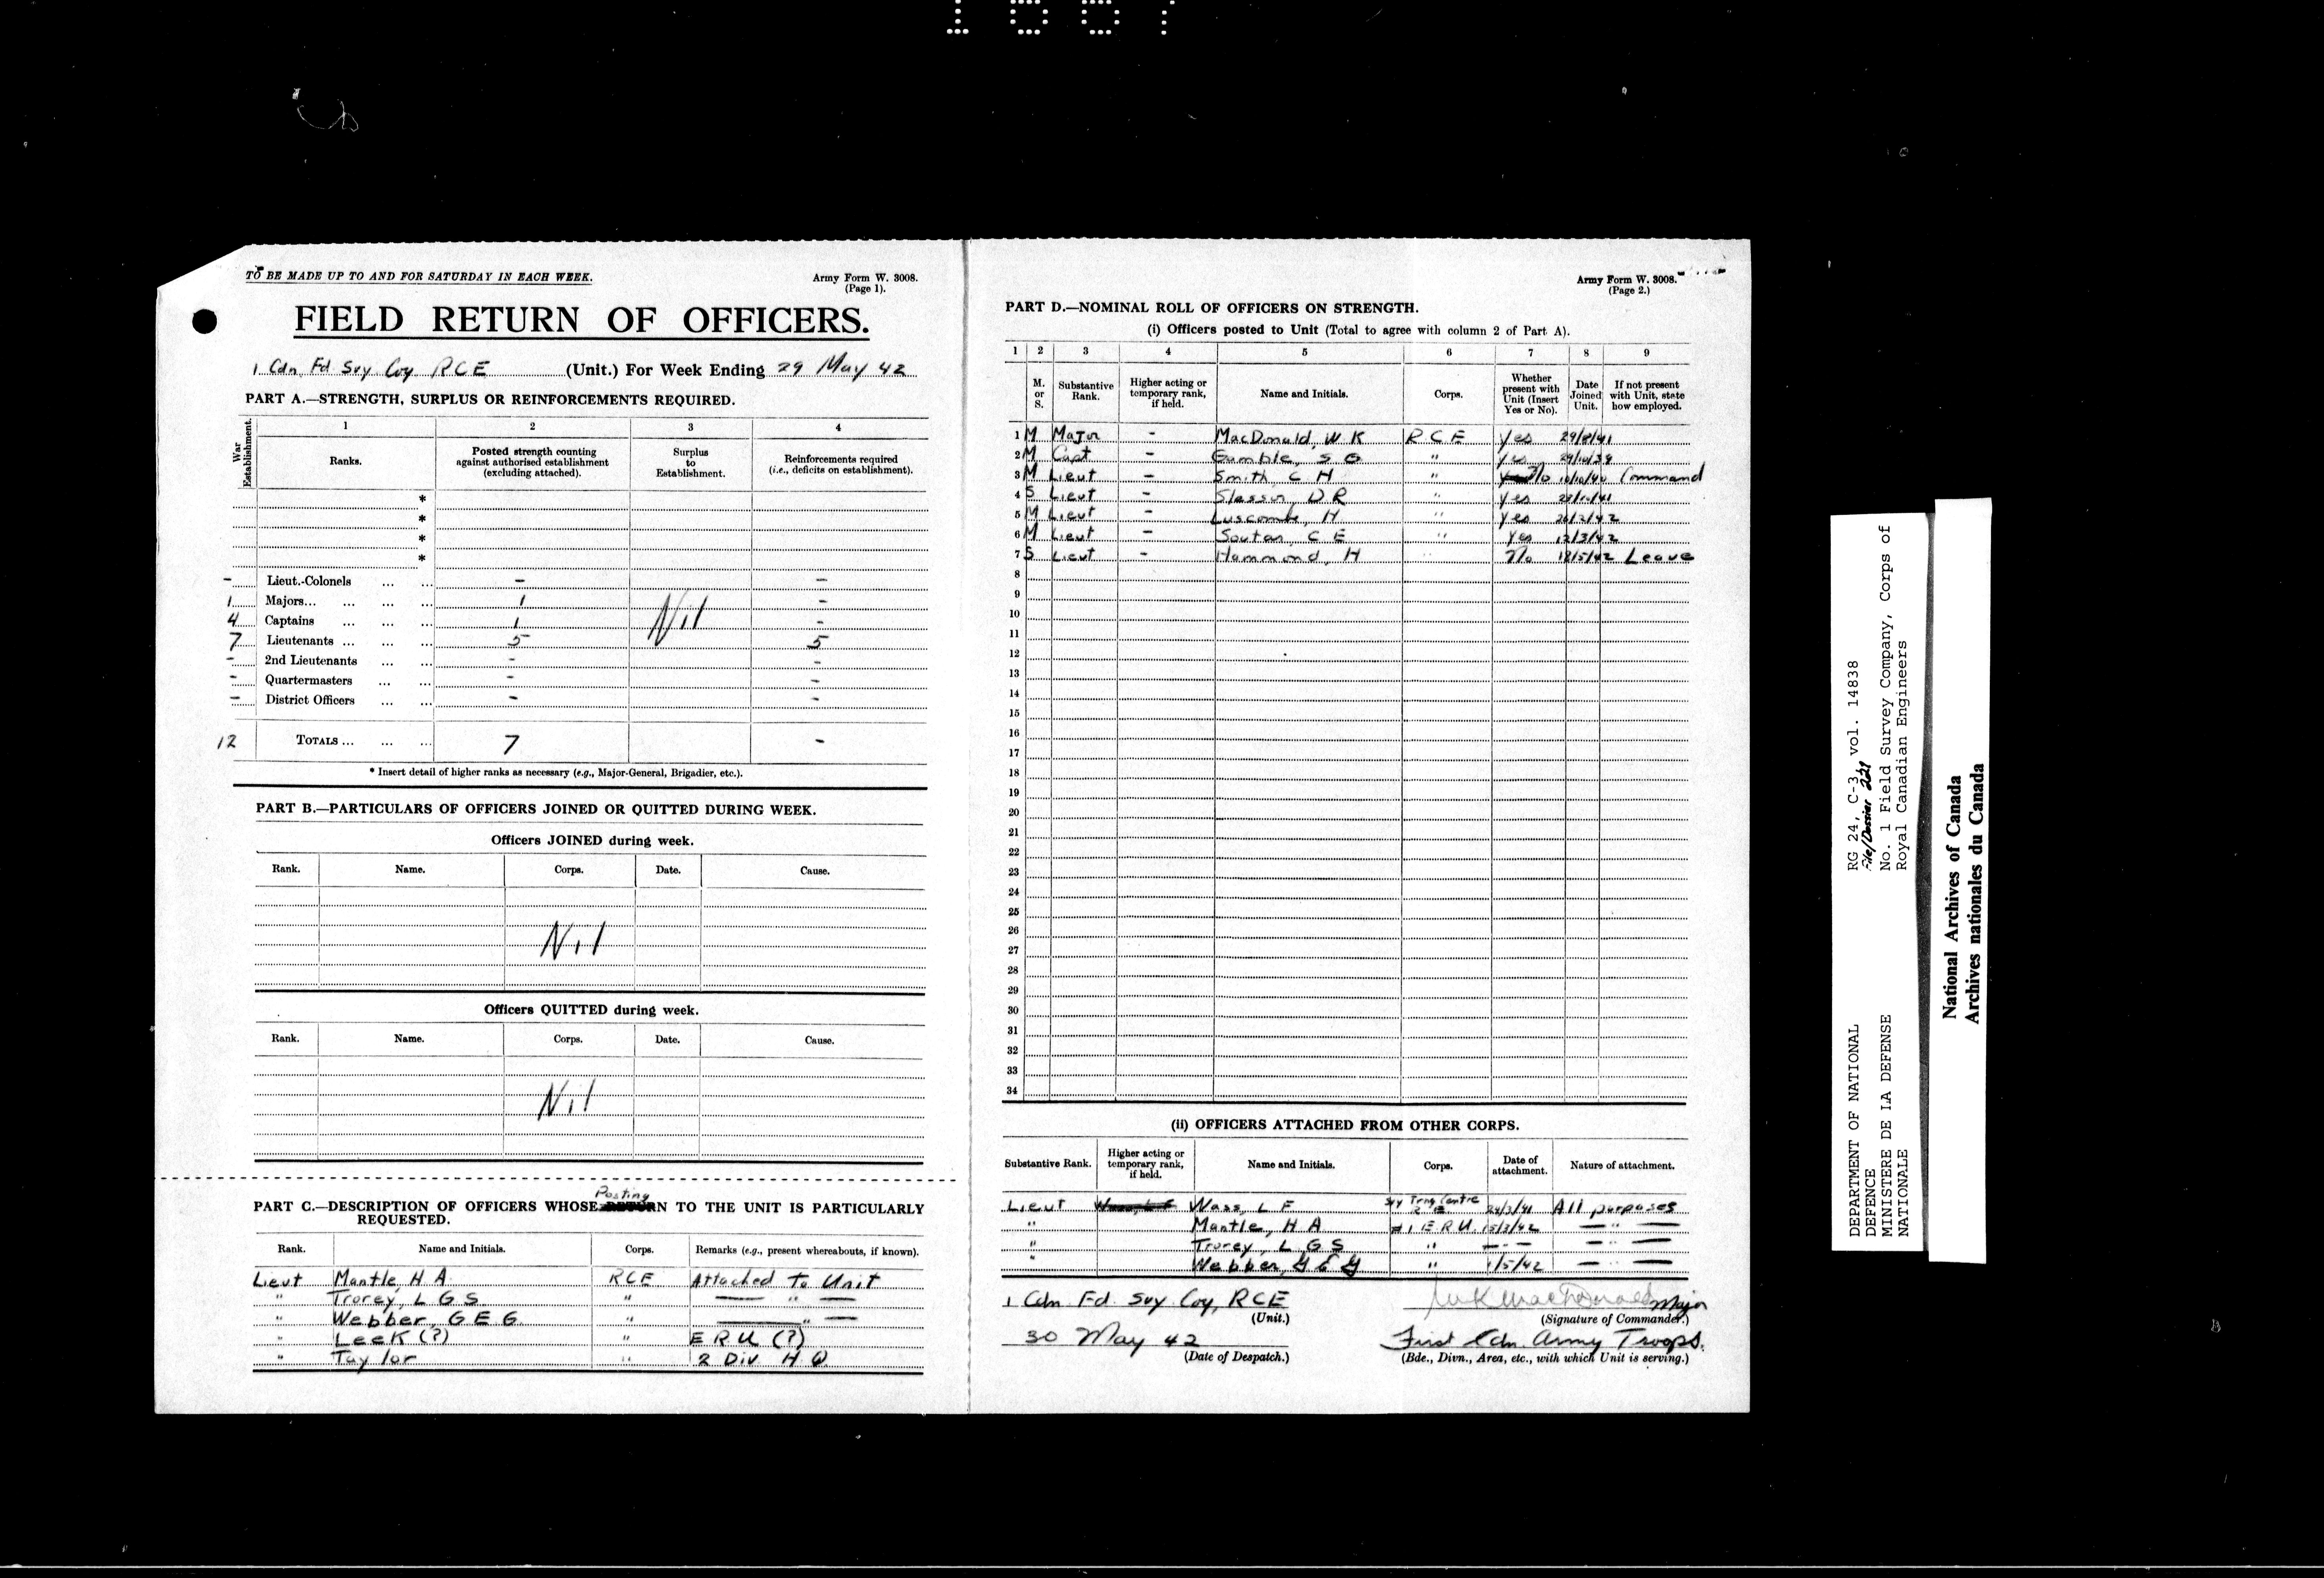 TO BE MADE UP TO AND FOR SATURDAY IN EACH WEEK.
Army Form W. 3008.
(Page 1).
FIELD RETURN OF OFFICERS.
1 Cdn Fd Svy Coy RCE (Unit.) For Week Ending 29 May 42
PART A.—STRENGTH, SURPLUS OR REINFORCEMENTS REQUIRED.
War Establishment.
1 2 3 4
Ranks. Posted strength counting against authorised establishment (excluding attached). Surplus to Establishment. Reinforcements required (i.e., deficits on establishment).
*
*
*
*
- Lieut.-Colonels ... ... - -
1 Majors... ... ... ... 1 -
4 Captains ... ... ... 1 Nil -
7 Lieutenants ... ... ... 5 5
- 2nd Lieutenants ... ... - -
- Quartermasters ... ... - -
- District Officers ... ... - -
12 TOTALS ... ... ... 7 -
* Insert detail of higher ranks as necessary (e.g., Major-General, Brigadier, etc.).
PART B.—PARTICULARS OF OFFICERS JOINED OR QUITTED DURING WEEK.
Officers JOINED during week.
Rank. Name. Corps. Date. Cause.
Nil
Officers QUITTED during week.
Rank. Name. Corps. Date. Cause.
Nil
Posting
PART C.—DESCRIPTION OF OFFICERS WHOSE RETURN TO THE UNIT IS PARTICULARLY
REQUESTED.
Rank. Name and Initials. Corps. Remarks (e.g., present whereabouts, if known).
Lieut Mantle, H A RCE Attached to Unit
" Trorey, L G S " — " —
" Webber, G E G " — " —
" Leek (?) " E R U (?)
" Taylor " 2 Div H Q
Army Form W. 3008.
(Page 2.)
PART D.—NOMINAL ROLL OF OFFICERS ON STRENGTH.
(i) Officers posted to Unit (Total to agree with column 2 of Part A).
1 2 3 4 5 6 7 8 9
M. or S. Substantive Rank. Higher acting or temporary rank, if held. Name and Initials. Corps. Whether present with Unit (Insert Yes or No). Date Joined Unit. If not present with Unit, state how employed.
1 M Major - MacDonald, W K R C E Yes 29/8/41
2 M Capt - Gamble, S G " Yes 29/10/39
3 M Lieut - Smith, C H " No 10/10/40 Command
4 S Lieut - Slessor, D R " Yes
5 M Lieut - Luscombe, H " Yes 26/2/42
6 M Lieut - Soutar, C E " Yes 12/3/42
7 S Lieut - Hammond, H " No 18/5/42 Leave
8
9
10
11
12
13
14
15
16
17
18
19
20
21
22
23
24
25
26
27
28
29
30
31
32
33
34
(ii) OFFICERS ATTACHED FROM OTHER CORPS.
Substantive Rank. Higher acting or temporary rank, if held. Name and Initials. Corps. Date of attachment. Nature of attachment.
Lieut Wass, L F Svy Trng Centre R E 24/3/41 All purposes
" Mantle, H A #1 E R U 15/3/42 — " —
" Trorey, L G S " — " — — " —
" Webber, G E G " 1/5/42 — " —
1 Cdn Fd Svy Coy, RCE
(Unit.)
WK MacDonald Major
(Signature of Commander.)
30 May 42
(Date of Despatch.)
First Cdn Army Troops.
(Bde., Divn., Area, etc., with which Unit is serving.)
DEPARTMENT OF NATIONAL
DEFENCE
MINISTERE DE LA DEFENSE
NATIONALE
RG 24, C-3, vol. 14838
File/Dossier 221
No. 1 Field Survey Company, Corps of
Royal Canadian Engineers
National Archives of Canada
Archives nationales du Canada